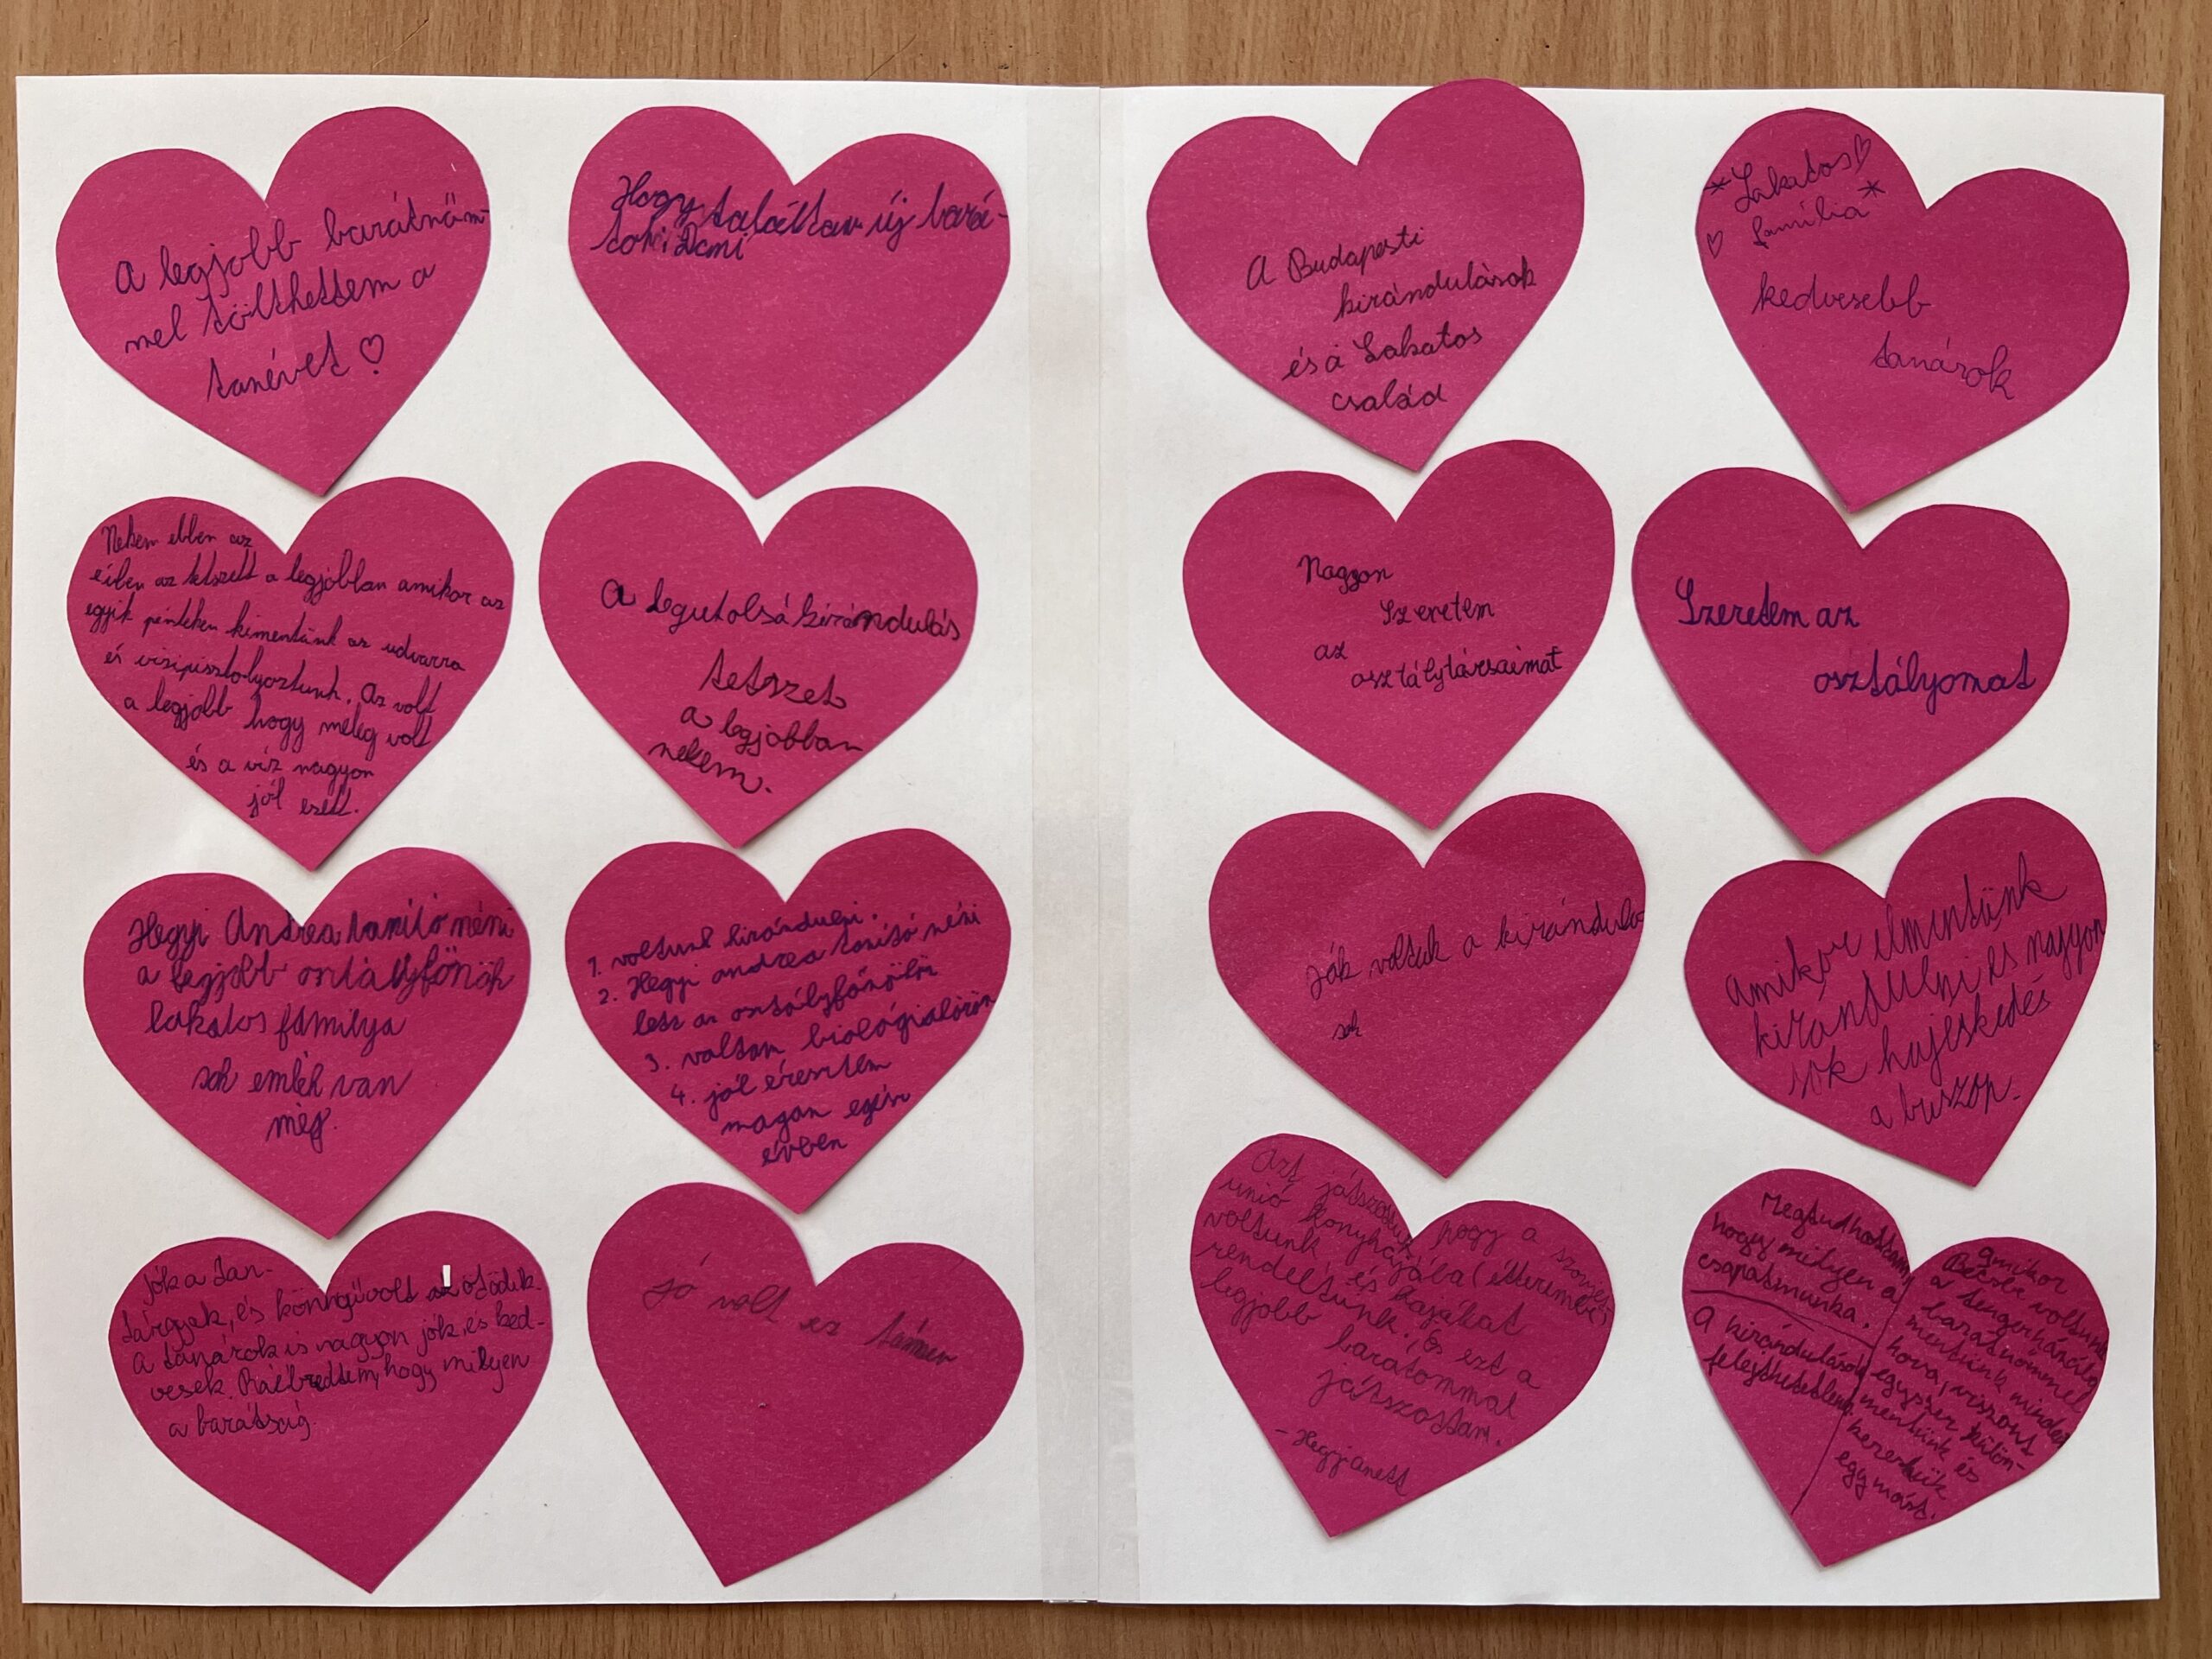 A legjobb barátnőm-
mel tölthettem a
tanévet ♡
Hogy találtam új bará-
tok: Dani
A Budapesti
kirándulások
és a Lakatos
család
*Lakatos♡
♡ família*
kedvesebb
tanárok
Nekem ebben az
évben az tetszett a legjobban amikor az
egyik pénteken kimentünk az udvarra
és vizipisztolyoztunk. Az volt
a legjobb hogy meleg volt
és a víz nagyon
jól esett.
A legutolsó kirándulás
tetszet
a legjobban
nekem.
Nagyon
Szeretem
az
osztálytársaimat
Szeretem az
osztályomat
Hegyi Andrea tanító néni
a legjobb osztályfönök
lakatos fámilya
sok emlék van
még.
1. voltunk kirándulni.
2. Hegyi andrea tanító néni
lett az osztályfőnököm
3. voltam
4. jól éreztem
magam egész
évben
Jók voltak a kirándulá
sok
amikor elmentünk
kirándulni és nagyon
sok hülyéskedés
a buszon.
Jók a tan-
tárgyak, és könnyű volt az ötödik.
A tanárok is nagyon jók, és ked-
vesek. Ráébredtem, hogy milyen
a barátság.
Jó volt ez
Azt játszottuk hogy a szovjet
unió konyhájába (étteremben)
voltunk és kajákat
rendeltünk. És ezt a
legjobb baratommal
játszottam.
Megtudhattam,
hogy milyen a
csapatmunka.
A kirándulások
felejthetetlenek
amikor
Bécsbe voltunk
a
barátnőmmel
mentünk minden
hova, viszont
egyszer külön-
mentünk és
kerestük
egymást.